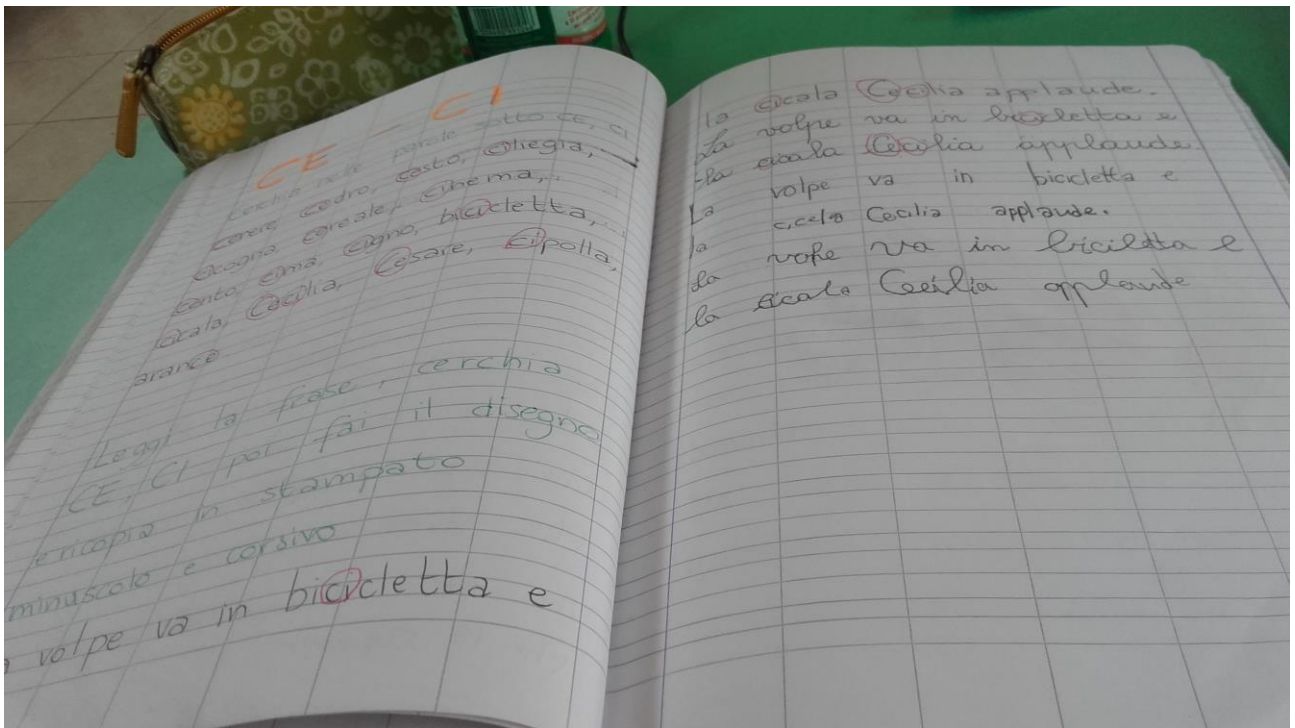 CE CI
Cerchia nelle parole sotto CE, CI
cenere, cedro, cesto, ciliegia,
cicogna, cereale, cinema,..
cento, cima, cigno, bicicletta,..
cicala, Cecilia, Cesare, cipolla,
arance
Leggi la frase, cerchia
CE, CI poi fai il disegno
e ricopia in stampato
minuscolo e corsivo
volpe va in bicicletta e
la cicala Cecilia applaude.
La volpe va in bicicletta e
la cicala Cecilia applaude
La volpe va in bicicletta e
la cicala Cecilia applaude.
La vope va in bicicletta e
la cicala Cecilia applaude